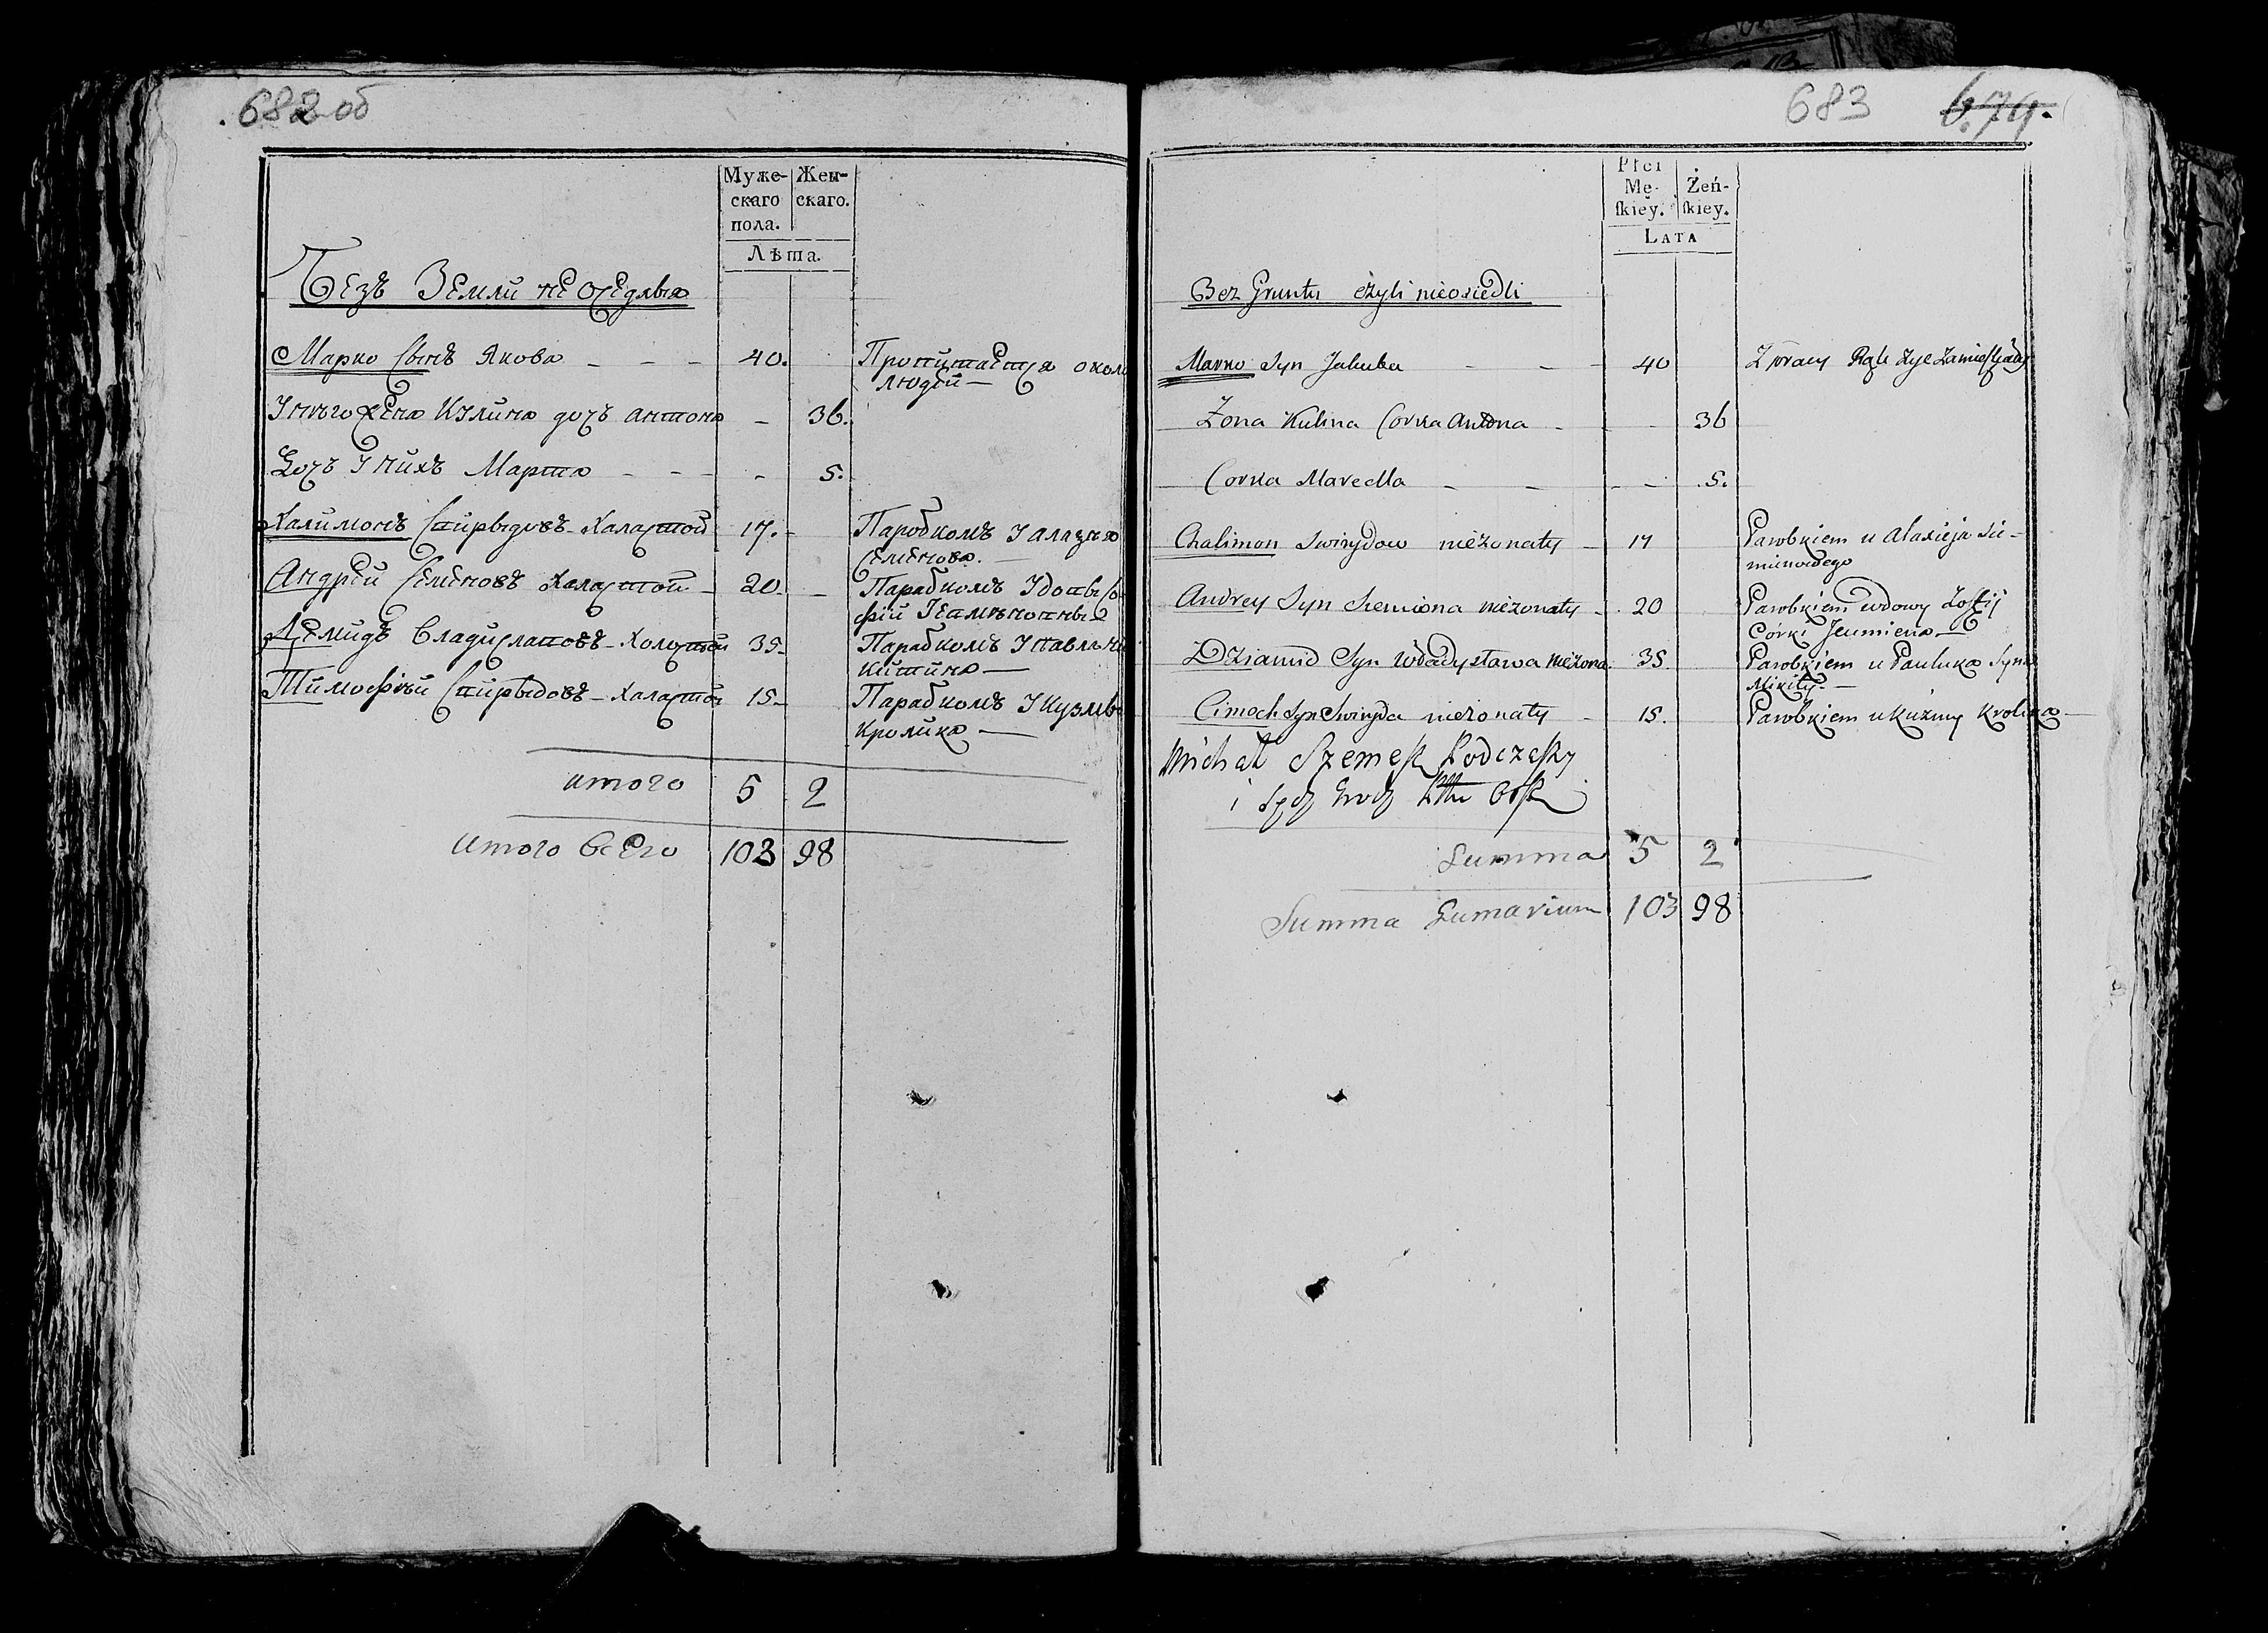 682 об
Муже- Жен-
скаго скаго.
пола.
Лѣта.
Безъ Земли не оседлыя
Марко Сынъ Якова - - - 40. Пропитается около
людей —
У него жена Кулина дочъ антона - 36.
Дочъ У нихъ Марта - - - - 5.
Халимонъ Спирыдовъ - Халастой 17. - Паробкомъ У алазея
Семенова. —
Андрей Семеновъ Халастой - 20. - Парабкомъ У
Демидъ Владиславовъ - Холостой 35. Парабкомъ У павлюка
Китина —
Тимофѣй Спирыдовъ - Халастой 15. Парабкомъ У Кузмы
Кролика —
итого 5 2
Итого всего 103 98
683 674.
Płci
Mę- Żeń-
ſkiey. ſkiey.
LATA
Bez Gruntu czyli nieosiedli
Marko Syn Jakuba - - - 40 Z pracy Rąk żyje
Żona Kulina Corka Antona - - 36
Corka Marcella - - - 5.
Chalimon Swirydow nieżonaty - 17 Parobkiem u Alaxieja Sie-
mienowego
Andrey Syn Siemiona nieżonaty - 20 Parobkiem wdowy Zofij
Córki Jeumiena —
Dziamid Syn Władysława nieżona. 35. Parobkiem u Pauluka Syna
Mikity. —
Cimoch Syn Swiryda nieżonaty - 15. Parobkiem u Kuzmy Krolika —
Michał Szemeſz Podczaſzy
i
Summa 5 2
Summa Sumarium 103 98